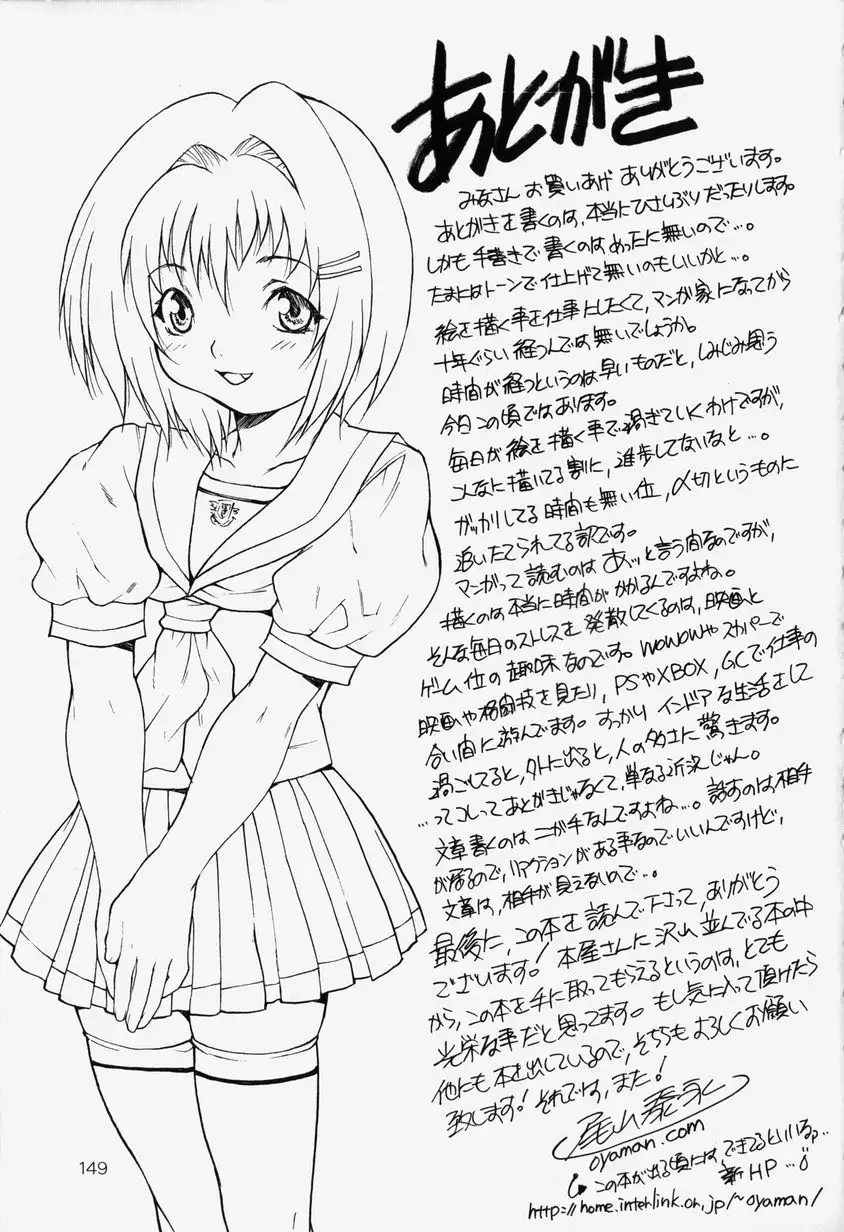 あとがき
みなさん お買いあげ ありがとうございます。
あとがきを書くのは、本当にひさしぶりだったりします。
しかも 手書きで 書くのは めったに無いので…。
たまにはトーンで仕上げて無いのもいいかと…。
絵を描く事を仕事にしたくて、マンガ家になってから
十年ぐらい 経つんでは無いでしょうか。
時間が経つというのは早いものだと、しみじみ思う
今日この頃ではあります。
毎日が絵を描く事で過ぎていくわけですが、
こんなに描いてる割に、進歩してないなと…。
ガッカリしてる時間も無い位、〆切というものに
追いたてられてる訳です。
マンガって読むのは あッと言う間なのですが、
描くのは本当に時間がかかるんですよね。
そんな毎日のストレスを 発散してくるのは、映画と
ゲーム位の趣味なのです。WOWOWやスカパーで
映画や格闘技を見たり、PSやXBOX、GCで仕事の
合い間に遊んでます。すっかり インドアな生活をして
過ごしてると、外に出ると、人の多さに驚きます。
…ってコレってあとがきじゃなくて、単なる近況じゃん。
文章書くのは ニが手なんですよね…。話すのは相手
が居るので、リアクションがある事なのでいいんですけど、
文章は、相手が見えないので…。
最後に、この本を読んで下さって、ありがとう
でざいます! 本屋さんに沢山並んでる本の中
から、この本を手に取ってもらえるというのは、とても
光栄な事だと思ってます。もし気に入って頂けたら
他にも本を出しているので、そちらもよろしくお願い
致します! それでは、また!
尾山泰永
oyaman.com
この本が出る頃には、できてるといいな
新HP…
http://home.interlink.or.jp/~oyaman/
149